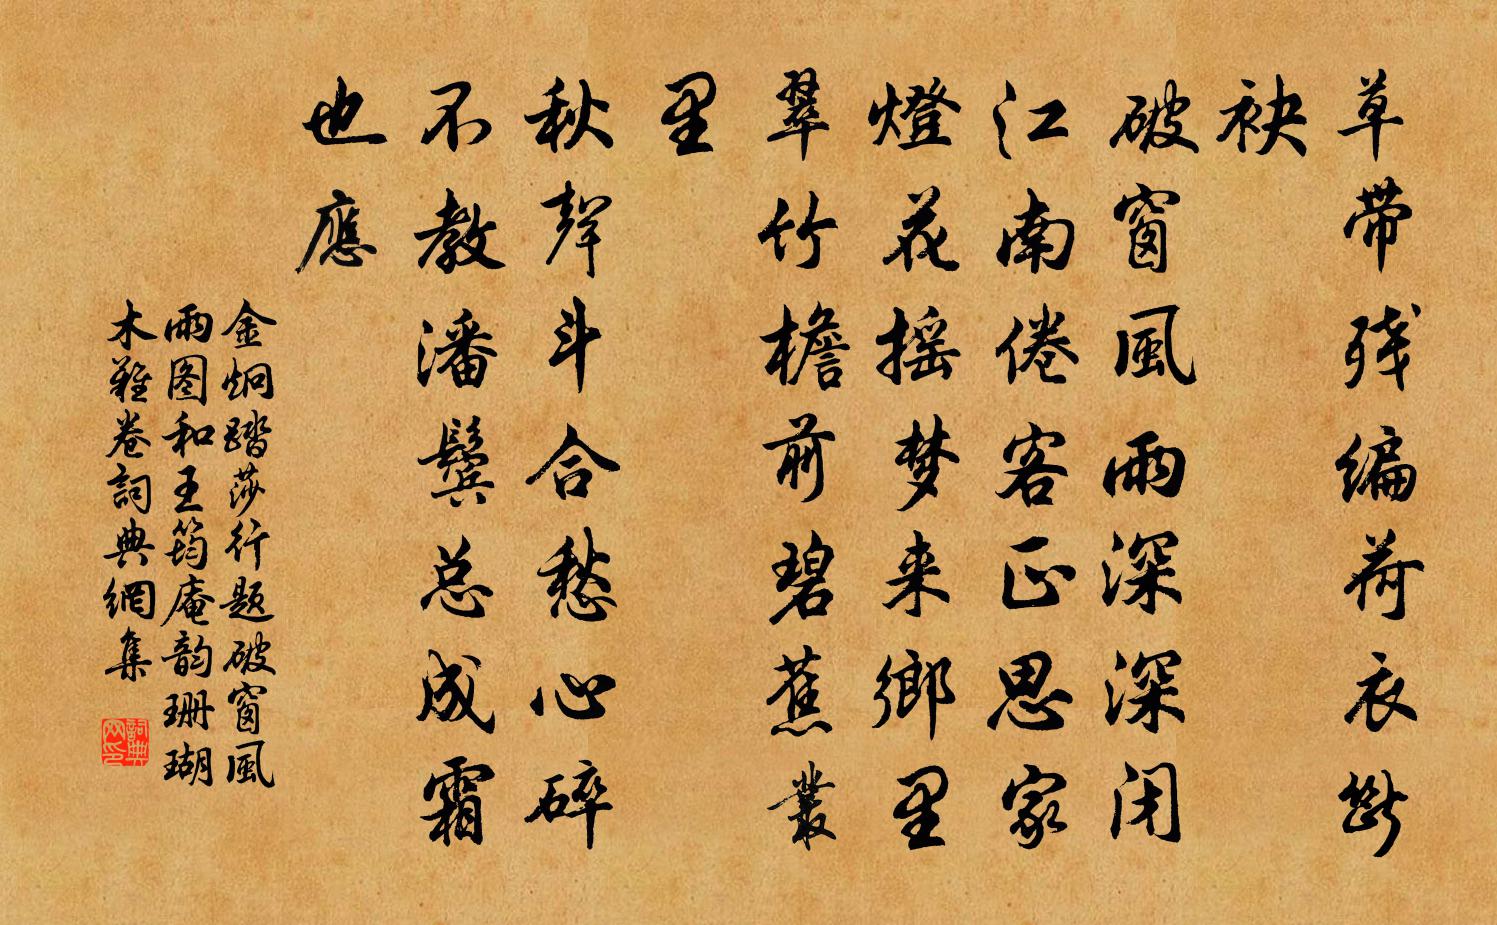 草带残编荷衣断
袂
破窗風雨深深闭
江南倦客正思家
燈花摇梦来鄉里
翠竹檐前碧蕉叢
里
秋聲斗合愁心碎
不教潘鬓总成霜
也應
金炯踏莎行题破窗風
雨图和王筠庵韵珊瑚
木難卷詞典網集
詞典
网印